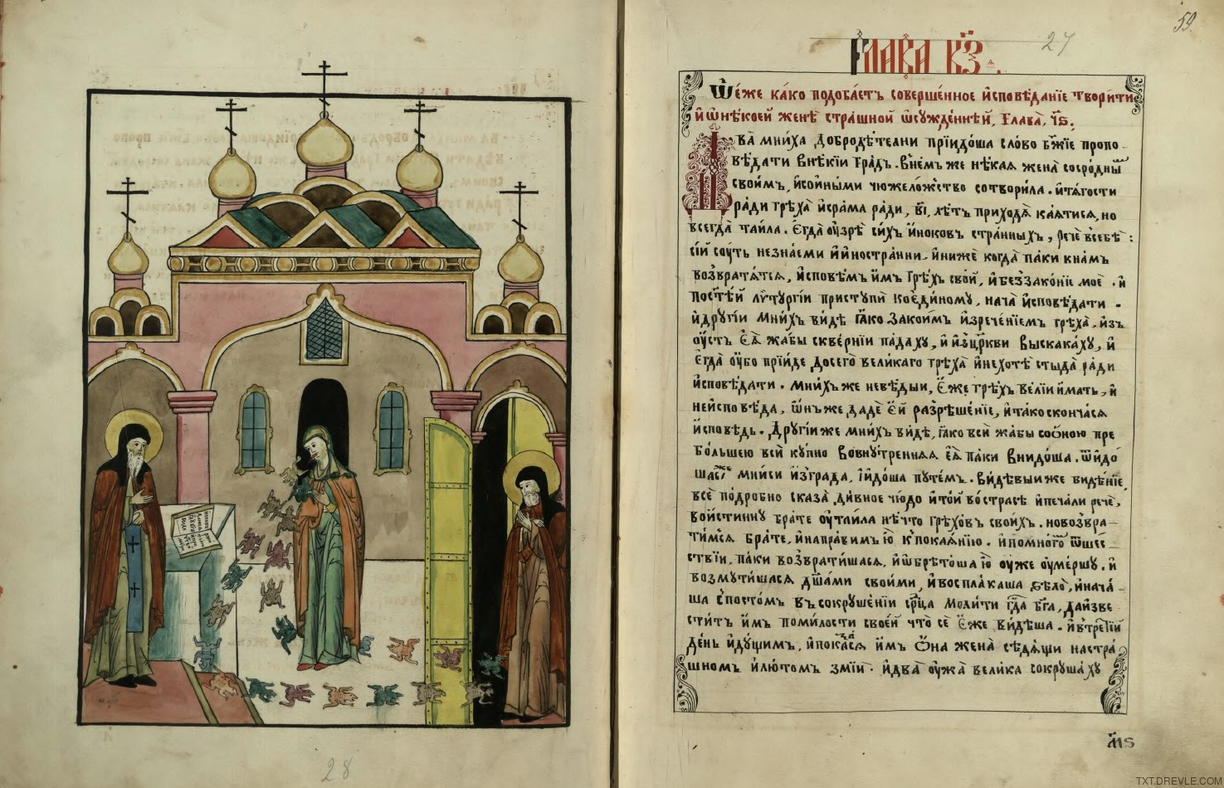 28
59
27
Глава к҃з
Ѿеже како подобаетъ совершенное исповѣданіе творити
и ѡ нѣкоей женѣ страшной ѡсужденнѣй, глава, і҃ѕ.
Два мниха добродѣтелни пріидоша слово бж҃іе пропо-
вѣдати внѣкіи градъ. внемъ же нѣкая жена сосродны
своимъ, исоиными чюжеложство сотворила. итягости
ради грѣха исрама ради, в҃і, лѣтъ приходя каятися, но
всегда таила. егда оузрѣ сихъ иноковъ странныхъ, рече всебѣ:
сіи суть незнаеми ииностранни. иниже когда паки кнамъ
возвратятся, исповѣмъ имъ грѣхъ свой, ибеззаконіе мое. и
постѣй литургіи приступи коединому, нача исповѣдати.
идругіи мнихъ видѣ яко закоимъ изреченіемъ грѣха, изъ
оустъ ея жабы сквернии падаху, и изцркви выскакаху, и
егда оубо пріиде досего великаго грѣха инехотѣ стыда ради
исповѣдати. мнихъ же невѣдыи, еже грѣхъ веліи имать, и
неисповѣда, ѡнъ же даде ей разрѣшеніе, итако скончася
исповѣдь. другіи же мнихъ видѣ, яко вси жабы собною пре
болшею вси купно вовнутренняя ея паки внидоша. ѿидо
шаже мниси изграда, иидоша путемъ. видѣвыи же видѣніе,
все подробно сказа дивное чюдо итои востраве ипечали рече,
воистинну брате оутаила нѣчто грѣховъ своихъ. новозвра-
тимся брате, инаправимъ ю кпокаянію. ипомногѡ ѿшес
ствіи, паки возвратишася, иѡбрѣтоша ю оуже оумершу. и
возмутишася дш҃ами своими, ивосплакаша ѕѣло, инача-
ша спостомъ въ сокрушеніи срдца молити гд҃а бг҃а, даизве
ститъ имъ помилости своей что се еже видѣша. ивтретіи
день идущимъ, ипоказася имъ ѻна жена сѣдящи настра
шномъ илютомъ зміи. идва оужа велика сокрушаху
TXT.DREVLE.COM